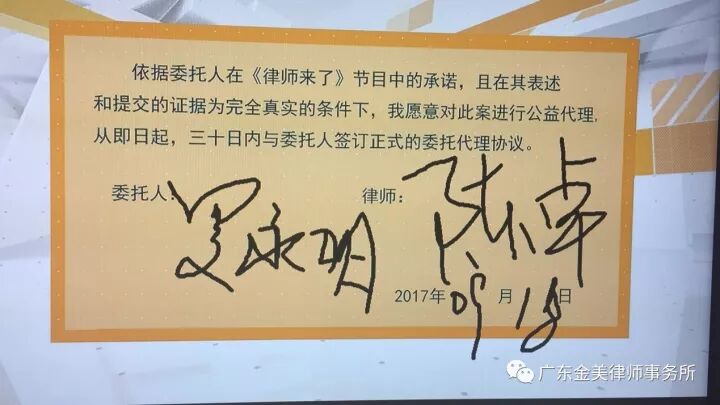 依据委托人在《律师来了》节目中的承诺，且在其表述
和提交的证据为完全真实的条件下，我愿意对此案进行公益代理，
从即日起，三十日内与委托人签订正式的委托代理协议。
委托人： 罗永明 律师： 陈卓
2017年 09 月 18 日
广东金美律师事务所